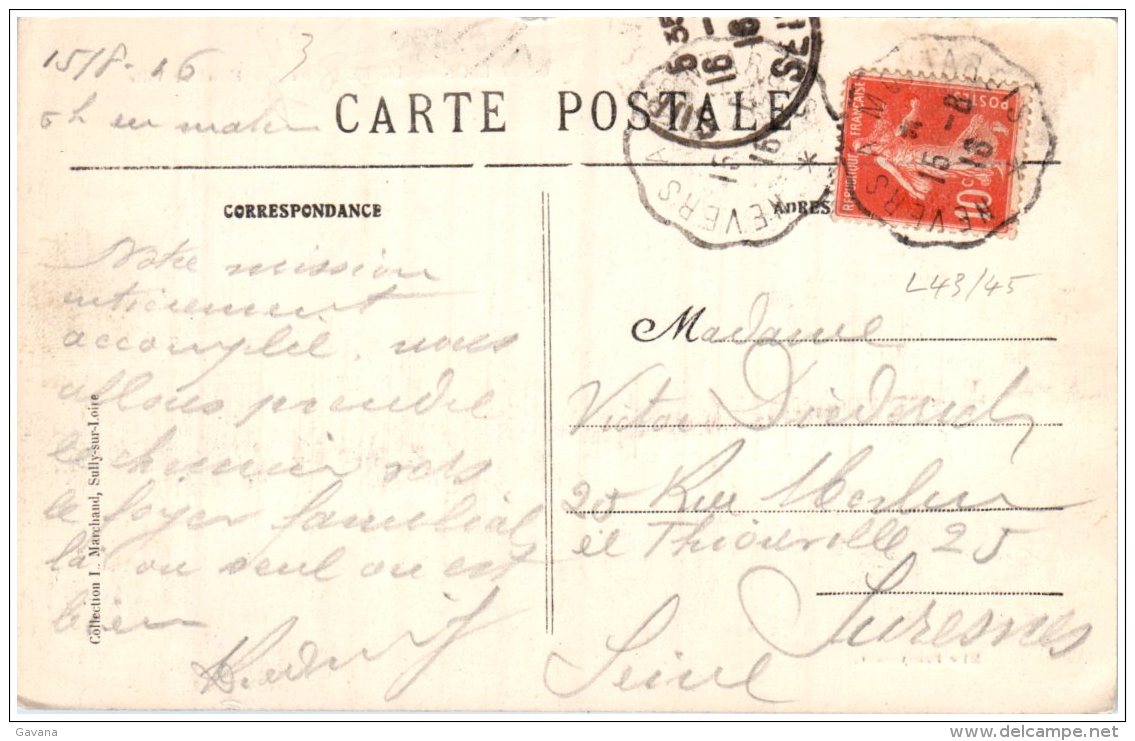 15/8-16
6h du matin
3
CARTE POSTALE
CORRESPONDANCE
Notre mission
entièrement
accomplie, nous
allons prendre
le chemin vers
le foyer familial
là où seul on est
bien
Collection L. Marchand, Sully-sur-Loire
ADRES
NEVERS A MONTARGIS
15 -8
16
NEVERS A MONTARGIS
15
16
6 35
16 -
16
SEINE
REPUBLIQUE FRANÇAISE
POSTES
10 c
L43/45
Madame
Victor Diederich
25 Rue Merlin
de Thionville 25
Suresnes
Seine
Gavana
www.delcampe.net